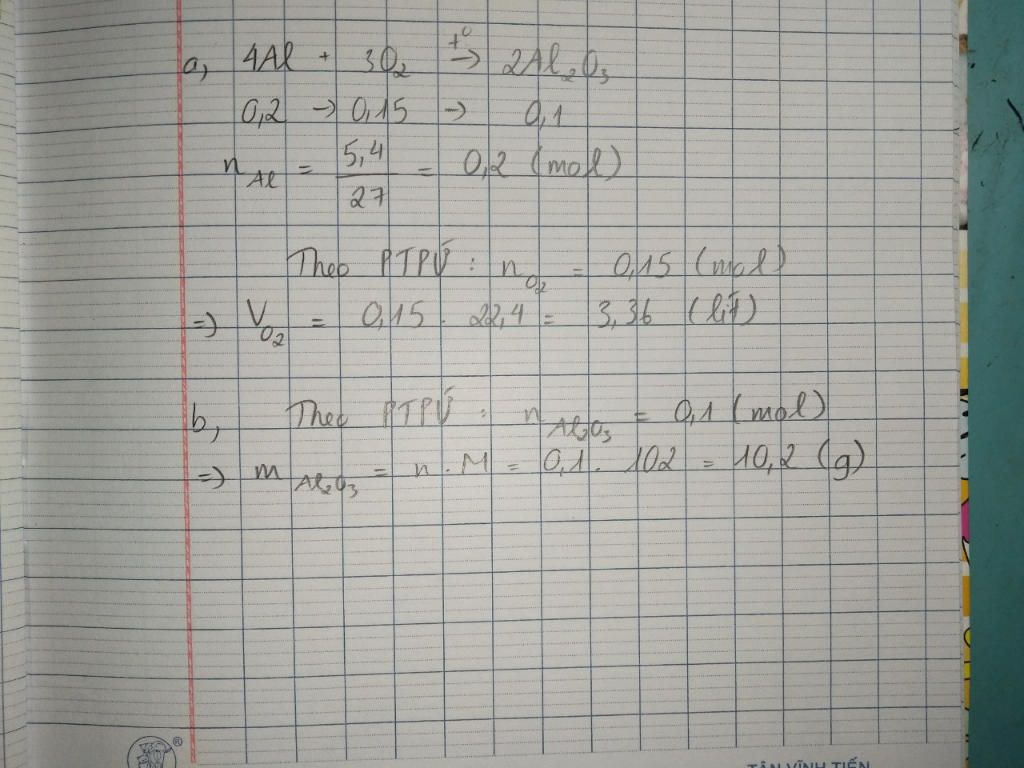 a, 4Al + 3O₂ –t°→ 2Al₂O₃
0,2 → 0,15 → 0,1
n_Al = 5,4/27 = 0,2 (mol)
Theo PTPƯ : n_O₂ = 0,15 (mol)
=> V_O₂ = 0,15 . 22,4 = 3,36 (lít)
b, Theo PTPƯ : n_Al₂O₃ = 0,1 (mol)
=> m_Al₂O₃ = n . M = 0,1 . 102 = 10,2 (g)
®
TÂN VĨNH TIẾN